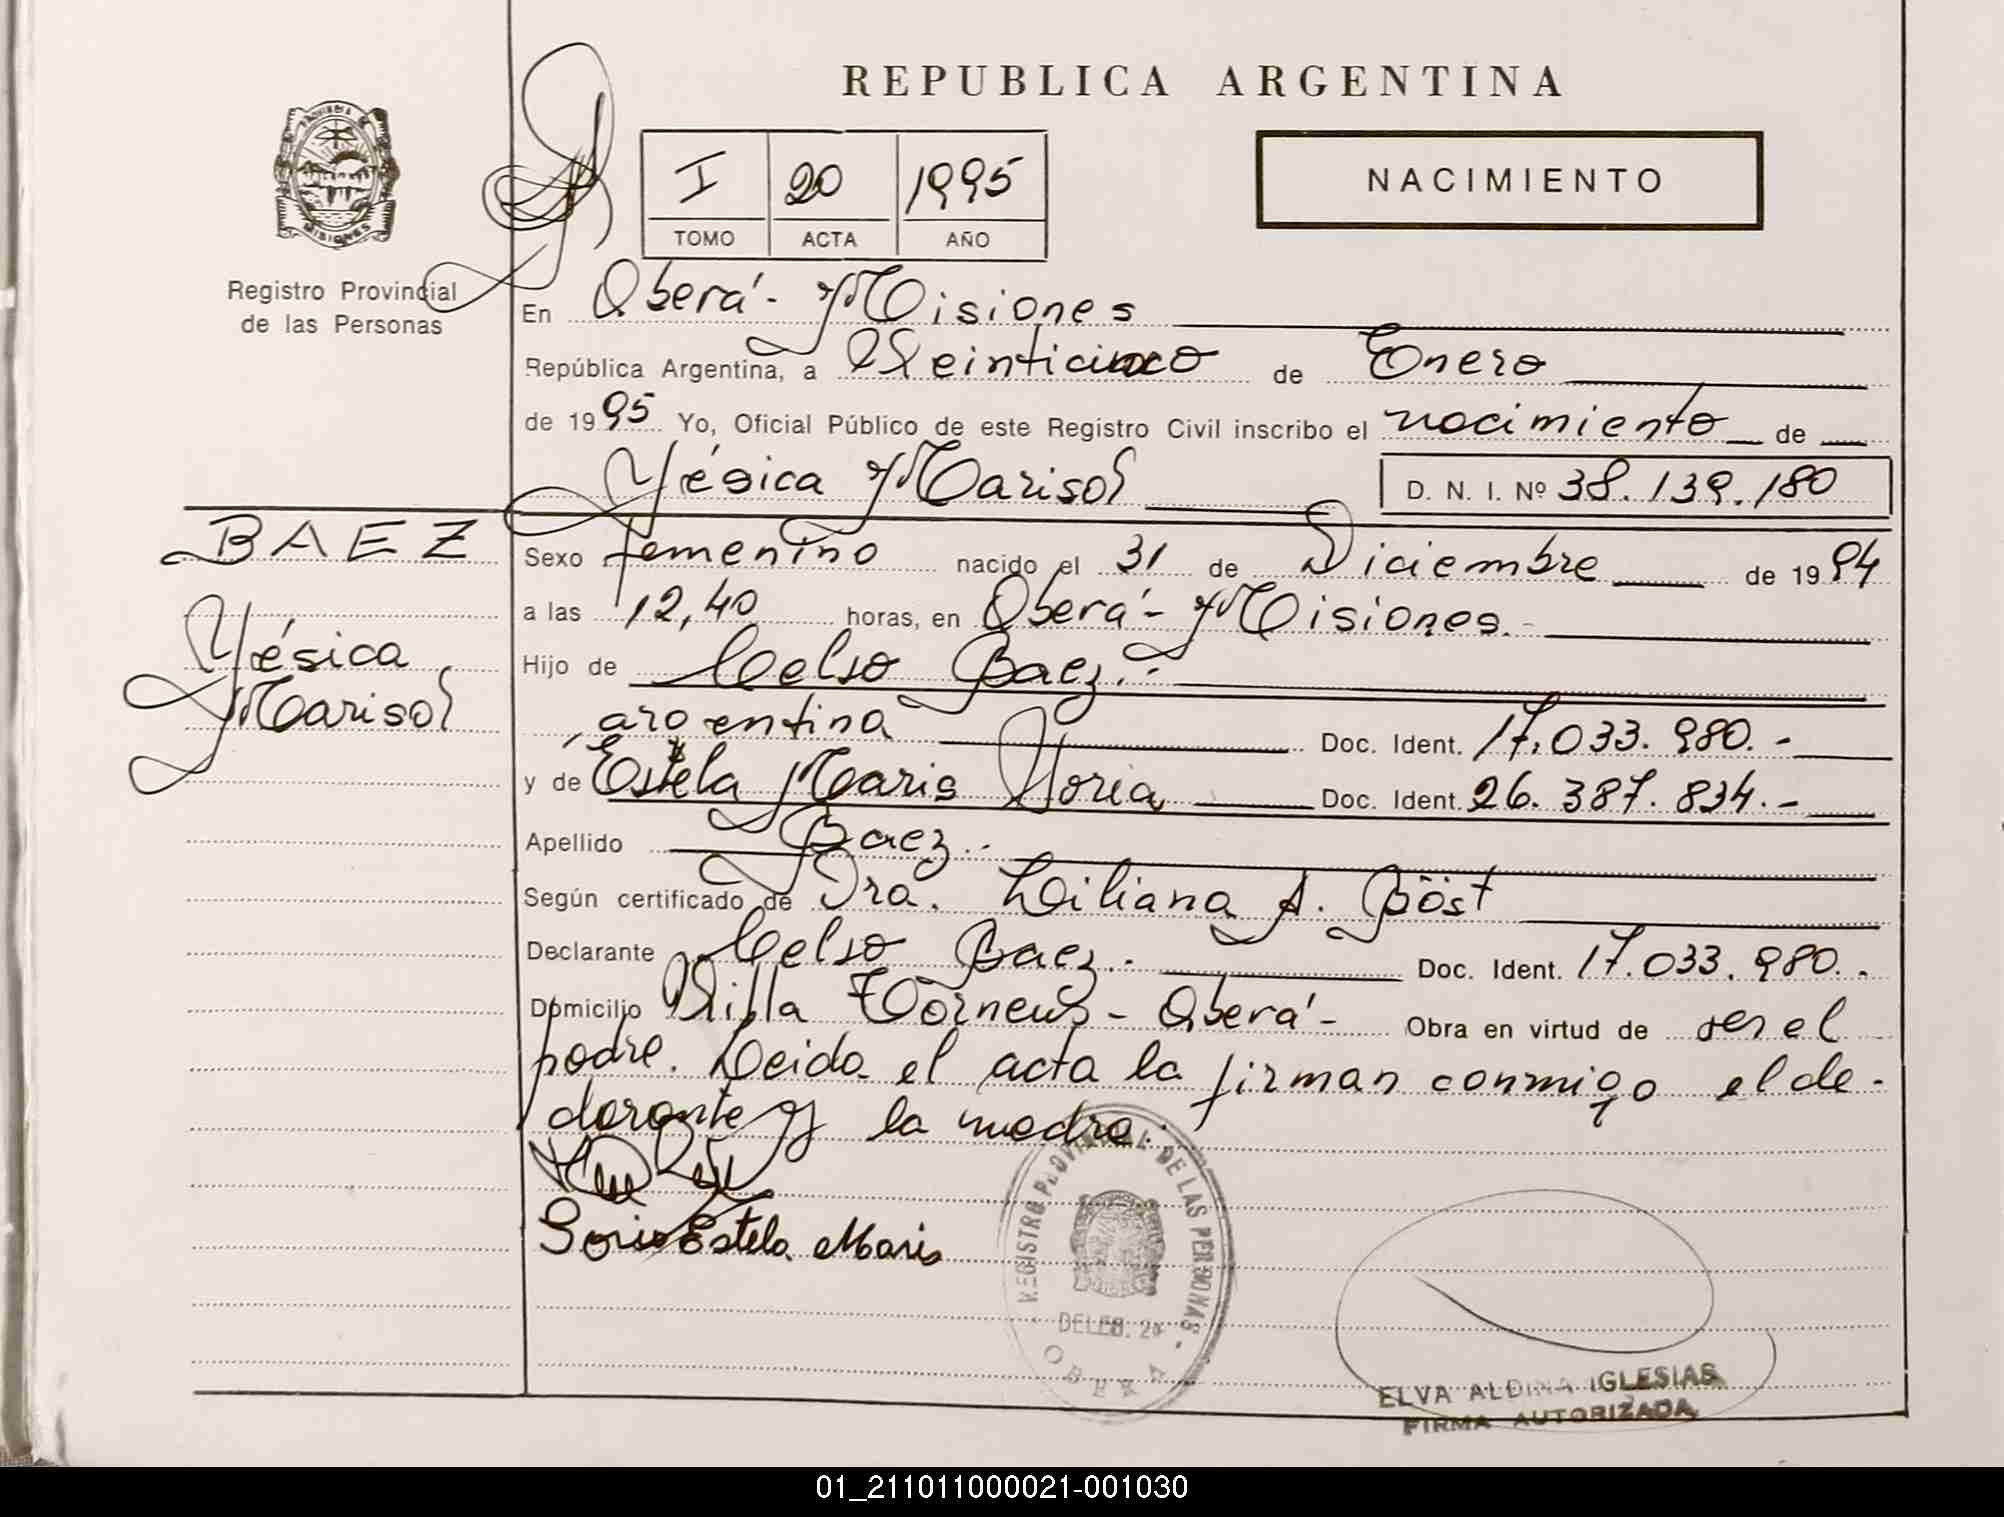 REPUBLICA ARGENTINA
PROVINCIA DE
MISIONES
Registro Provincial
de las Personas
I 20 1995
TOMO ACTA AÑO
NACIMIENTO
En Oberá - Misiones
República Argentina, a Veinticinco de Enero
de 1995 Yo, Oficial Público de este Registro Civil inscribo el nacimiento de
Yésica Marisol D. N. I. Nº 38.139.180
BAEZ
Yésica
Marisol
Sexo femenino nacido el 31 de Diciembre de 1994
a las 12,40 horas, en Oberá - Misiones.-
Hijo de Celso Baez.-
argentina Doc. Ident. 17.033.980.-
y de Estela Maris Doc. Ident. 26.387.834.-
Apellido Baez.-
Según certificado de Dra. Liliana A. Böst
Declarante Celso Baez.- Doc. Ident. 17.033.980.-
Domicilio Villa - Oberá - Obra en virtud de ser el
padre. Leida el acta la firman conmigo el de-
clarante y la madre.
Estela Maris
REGISTRO PROVINCIAL DE LAS PERSONAS -
DELEG. 2ª
OBERA
ELVA ALDINA IGLESIAS
FIRMA AUTORIZADA
01_211011000021-001030